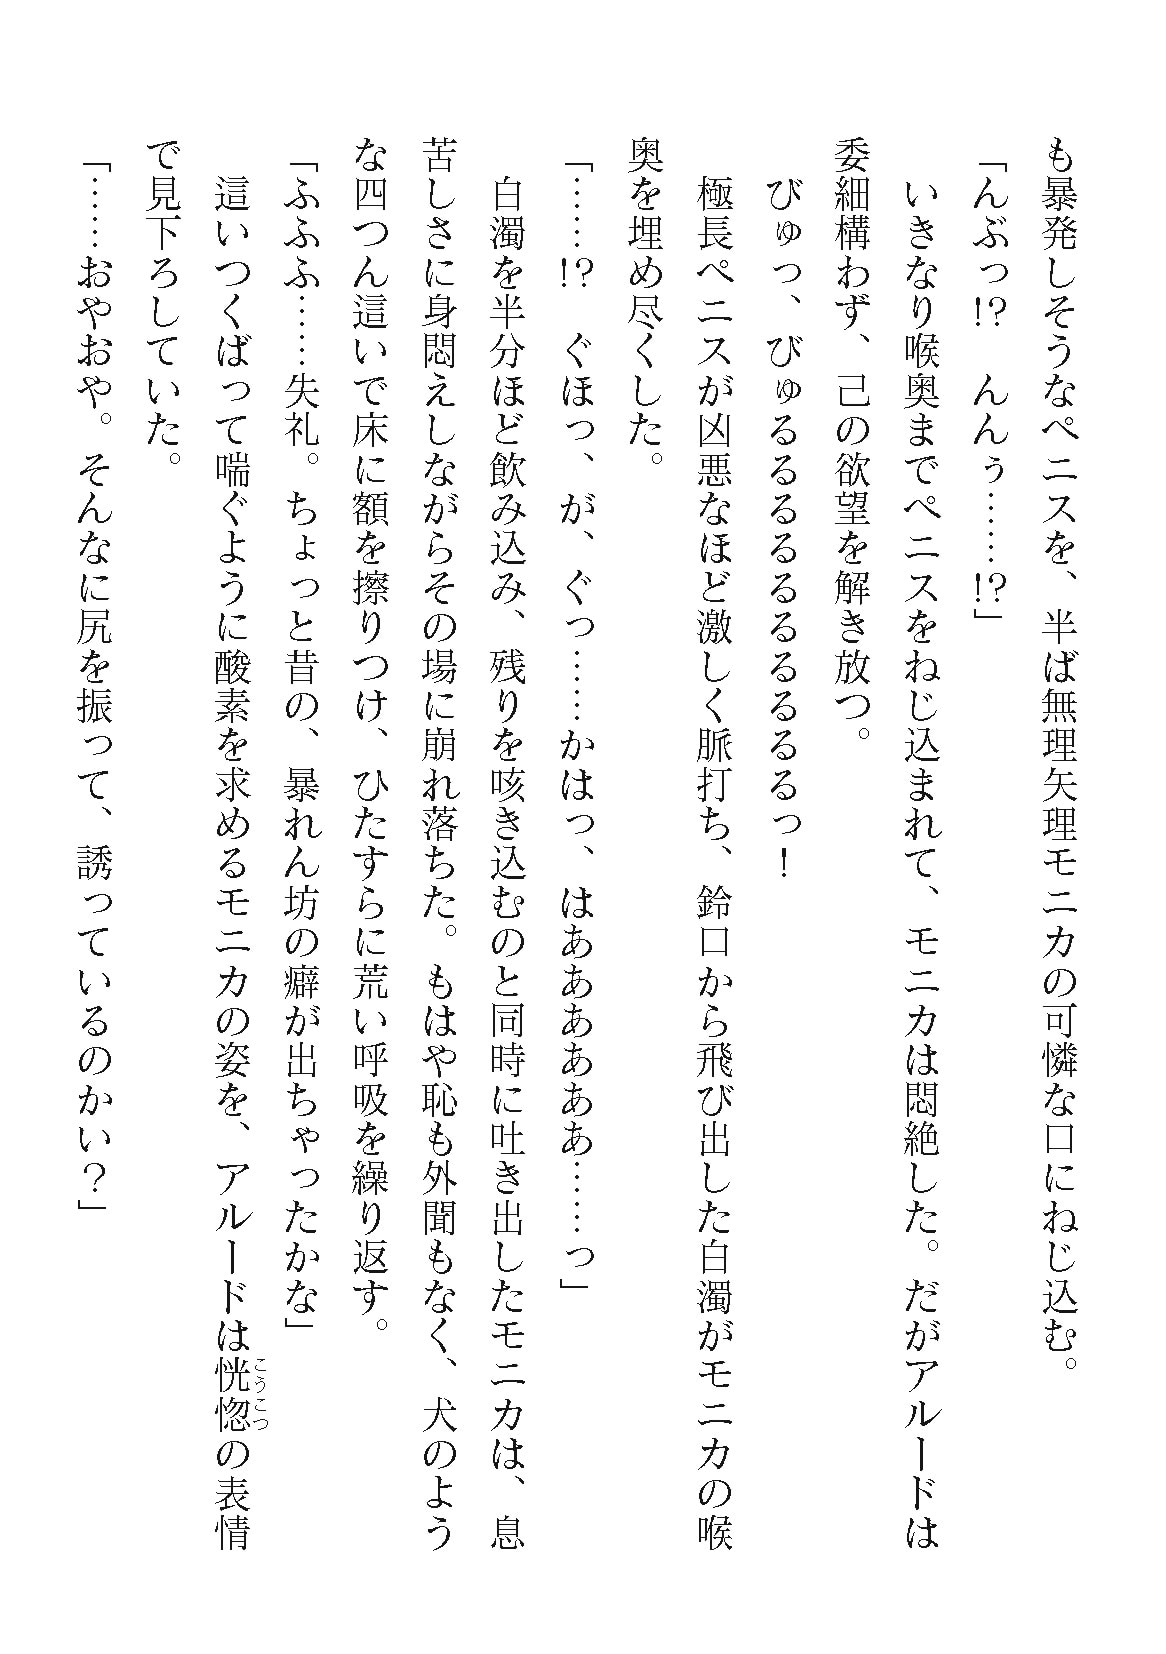 も暴発しそうなペニスを、半ば無理矢理モニカの可憐な口にねじ込む。
「んぶっ!?　んんぅ……!?」
いきなり喉奥までペニスをねじ込まれて、モニカは悶絶した。だがアルードは
委細構わず、己の欲望を解き放つ。
びゅっ、びゅるるるるるるるるっ！
極長ペニスが凶悪なほど激しく脈打ち、鈴口から飛び出した白濁がモニカの喉
奥を埋め尽くした。
「……!?　ぐほっ、が、ぐっ……かはっ、はああああああ……っ」
白濁を半分ほど飲み込み、残りを咳き込むのと同時に吐き出したモニカは、息
苦しさに身悶えしながらその場に崩れ落ちた。もはや恥も外聞もなく、犬のよう
な四つん這いで床に額を擦りつけ、ひたすらに荒い呼吸を繰り返す。
「ふふふ……失礼。ちょっと昔の、暴れん坊の癖が出ちゃったかな」
這いつくばって喘ぐように酸素を求めるモニカの姿を、アルードは恍惚の表情
で見下ろしていた。
「……おやおや。そんなに尻を振って、誘っているのかい？」
こうこつ